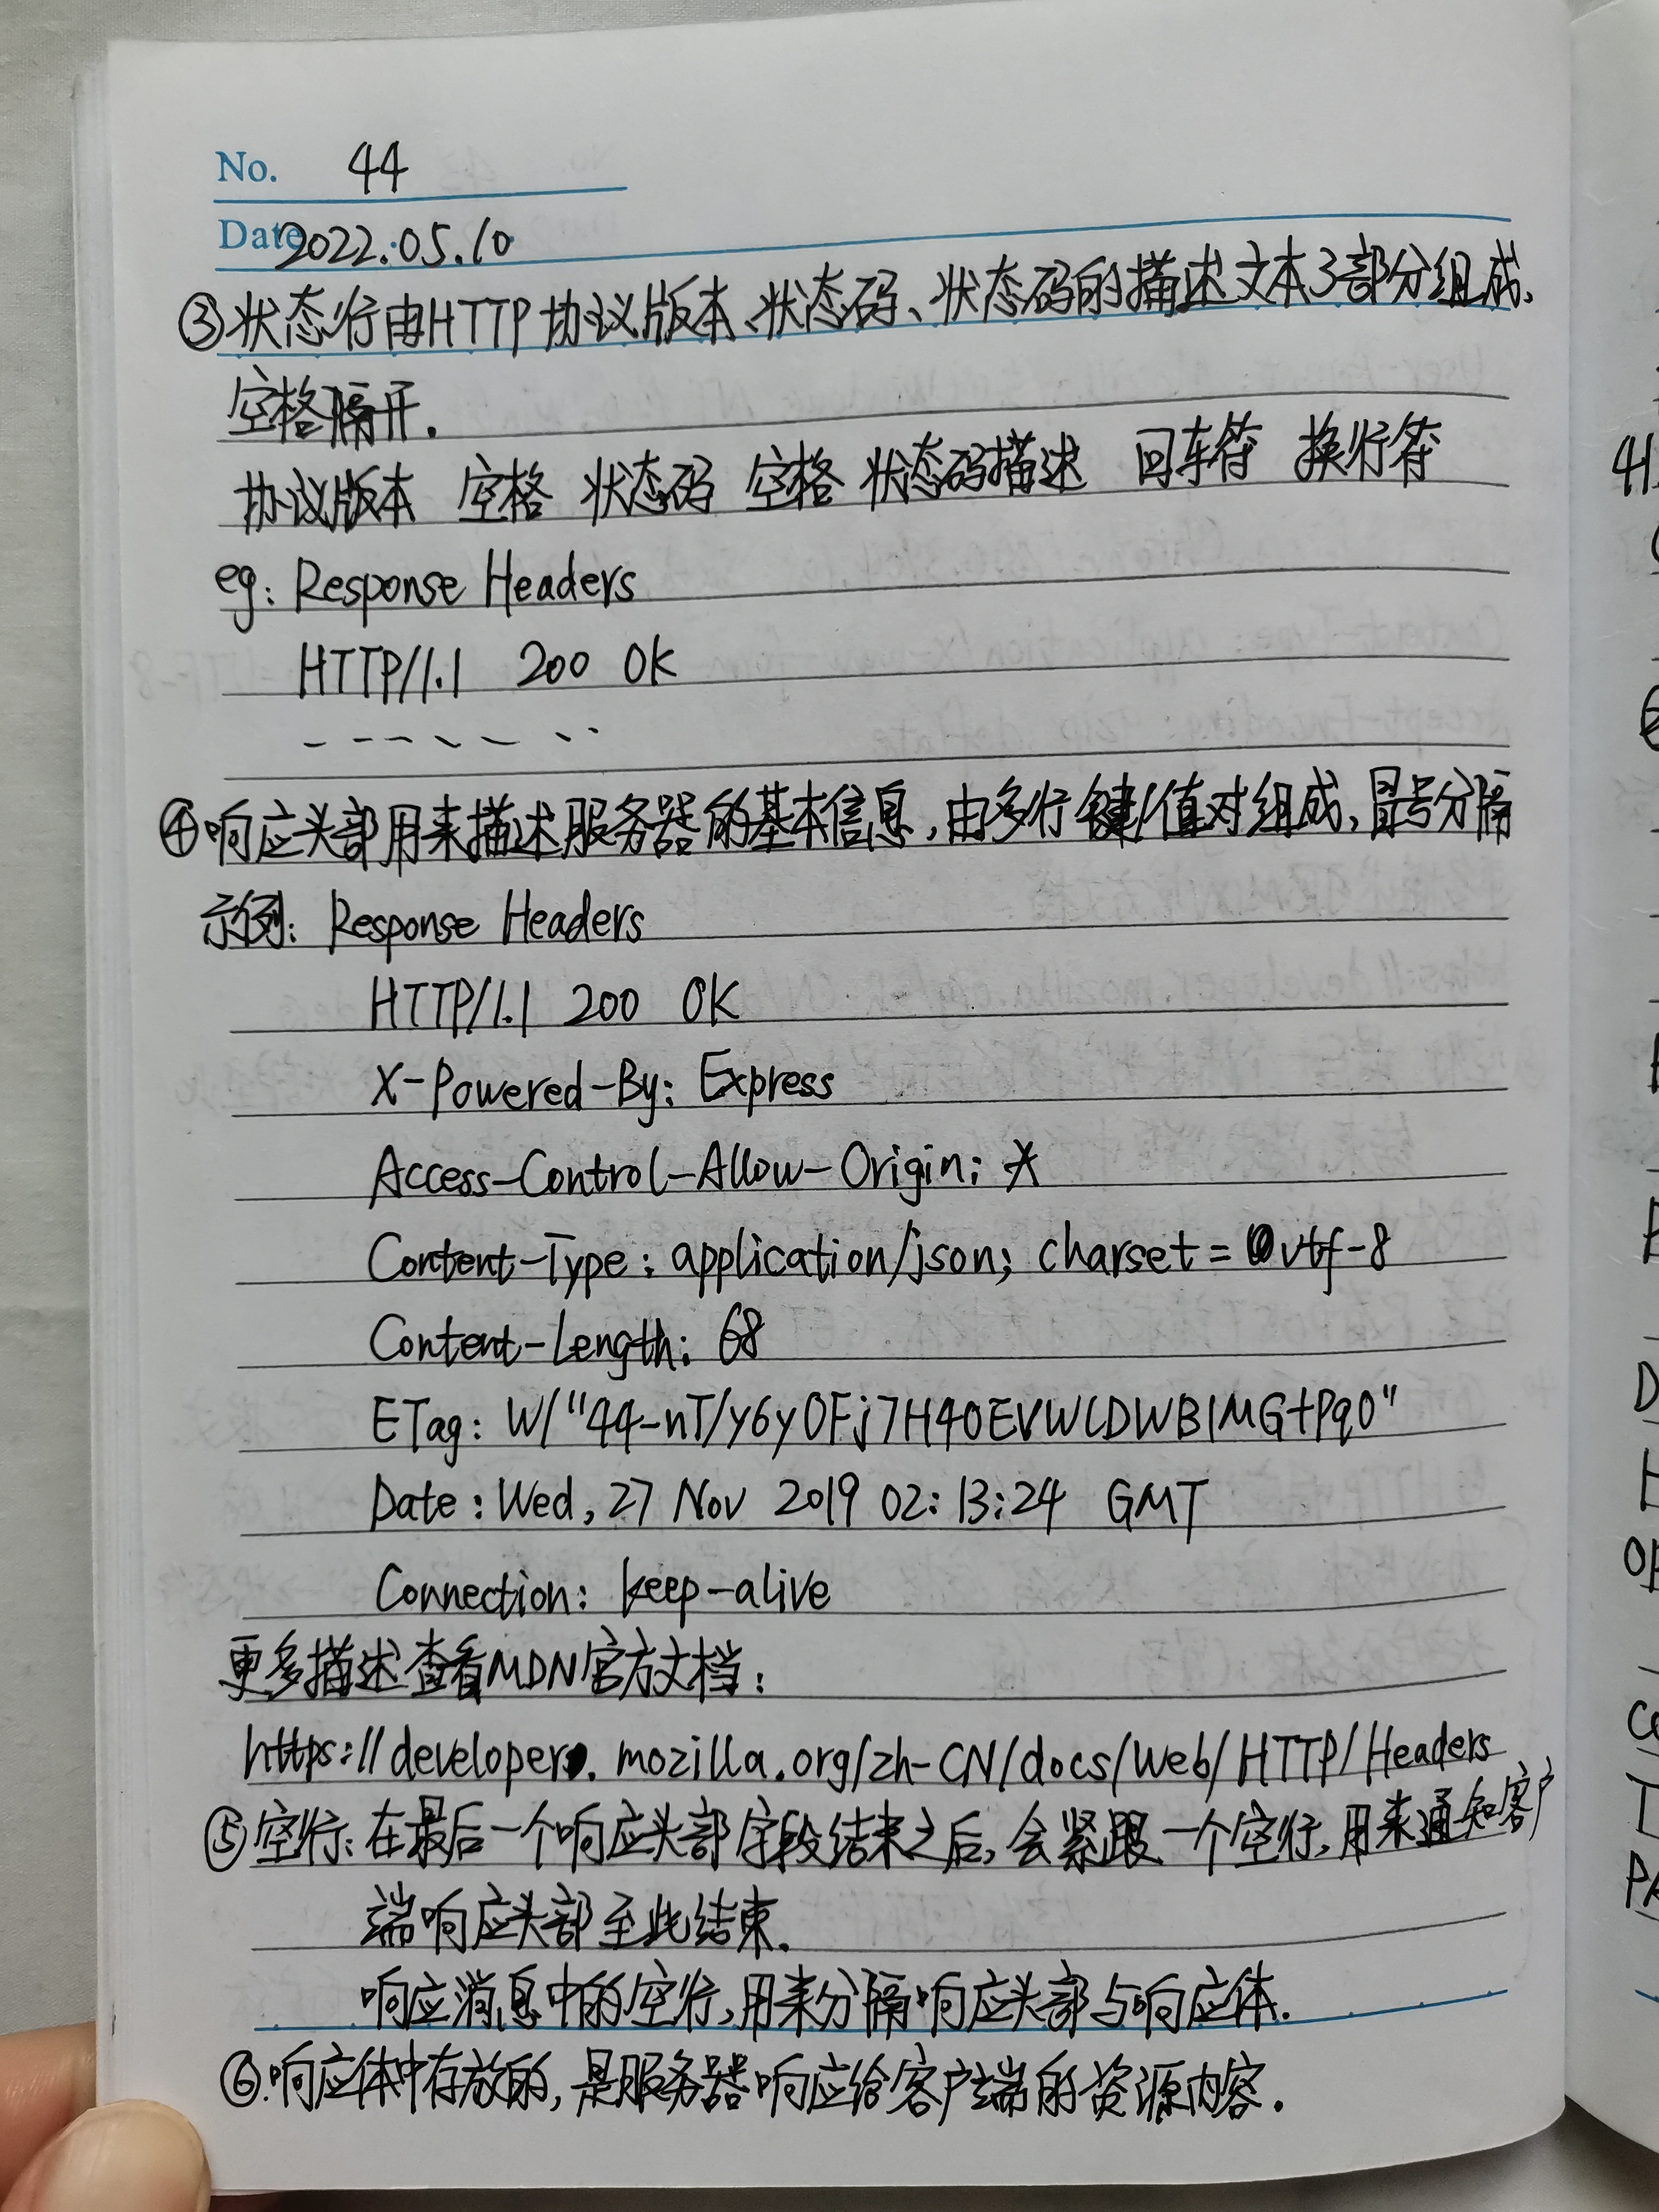 No. 44
Date 2022.05.10
③状态行由HTTP协议版本、状态码、状态码的描述文本3部分组成、
空格隔开.
协议版本 空格 状态码 空格 状态码描述 回车符 换行符
eg: Response Headers
HTTP/1.1 200 OK
④响应头部用来描述服务器的基本信息,由多行键/值对组成、冒号分隔
示例: Response Headers
HTTP/1.1 200 OK
X-Powered-By: Express
Access-Control-Allow-Origin: *
Content-Type: application/json; charset=utf-8
Content-Length: 68
ETag: W/"44-nT/y6yOFj7H40EVWCDWB1MG+Pq0"
Date: Wed, 27 Nov 2019 02:13:24 GMT
Connection: keep-alive
更多描述查看MDN官方文档:
https://developer.mozilla.org/zh-CN/docs/Web/HTTP/Headers
⑤空行:在最后一个响应头部字段结束之后,会紧跟一个空行,用来通知客户
端响应头部至此结束.
响应消息中的空行,用来分隔响应头部与响应体.
⑥.响应体中存放的,是服务器响应给客户端的资源内容.